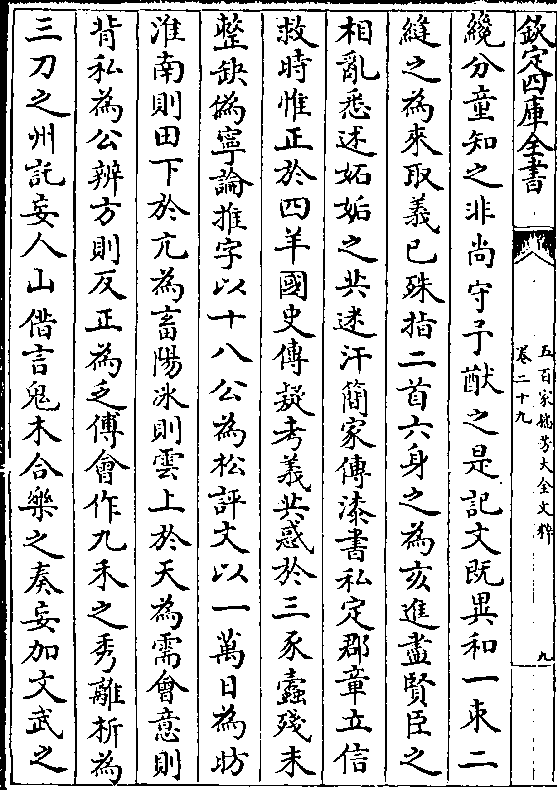 欽定四庫全書
五百家播芳大全文粹
卷二十九
九
纔分童知之非尚守子猷之是記文既異和一朿二
縫之為來取義已殊指二首六身之為亥進盡賢臣之
相亂悉述妬姤之共迷汗簡家傳漆書私定郡章立信
救時惟正於四羊國史傳疑考義共惑於三豕蠧殘未
整缺偽寧論推字以十八公為松評文以一萬日為昉
淮南則田下於亢為畜陽冰則雲上於天為需會意則
背私為公辨方則反正為乏傅會作九禾之秀離析為
三刀之州託妄人山偕言鬼木合樂之奏妄加文武之